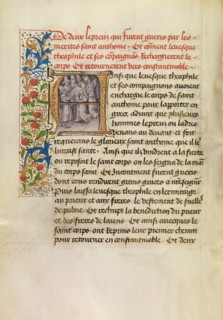 De deux lepreux qui furent gueris par les
merites saint anthoine. Et comment levesque
theophile et ses compaignons rechargerent le
corps. Et retournerent vers constantinoble.
Ainsi que levesque theophile
et ses compaignons avoient
encharge le corps de saint
anthoine pour lapporter en
grece advint que plusieurs
hommes lepreux ou ladres
venans au devant et fort
requerans le glorieux saint anthoine quil les
saint. Ainsi que ilz vindrent a la fierte
ou reposoit le saint corps on les seigna de la main
du corps saint. Et prestement furent gueris
dont tous rendirent graces a nostre seigneur.
Puis laissa levesque theophile en lermitage
au prieur et aux freres le vestement de fueilles
de palme. Et receupt la benediction du prieur
et des freres de leans. Et ainsi avecques le
saint corps ont reprins leur premier chemin
pour retourner en constantinoble. Et deux